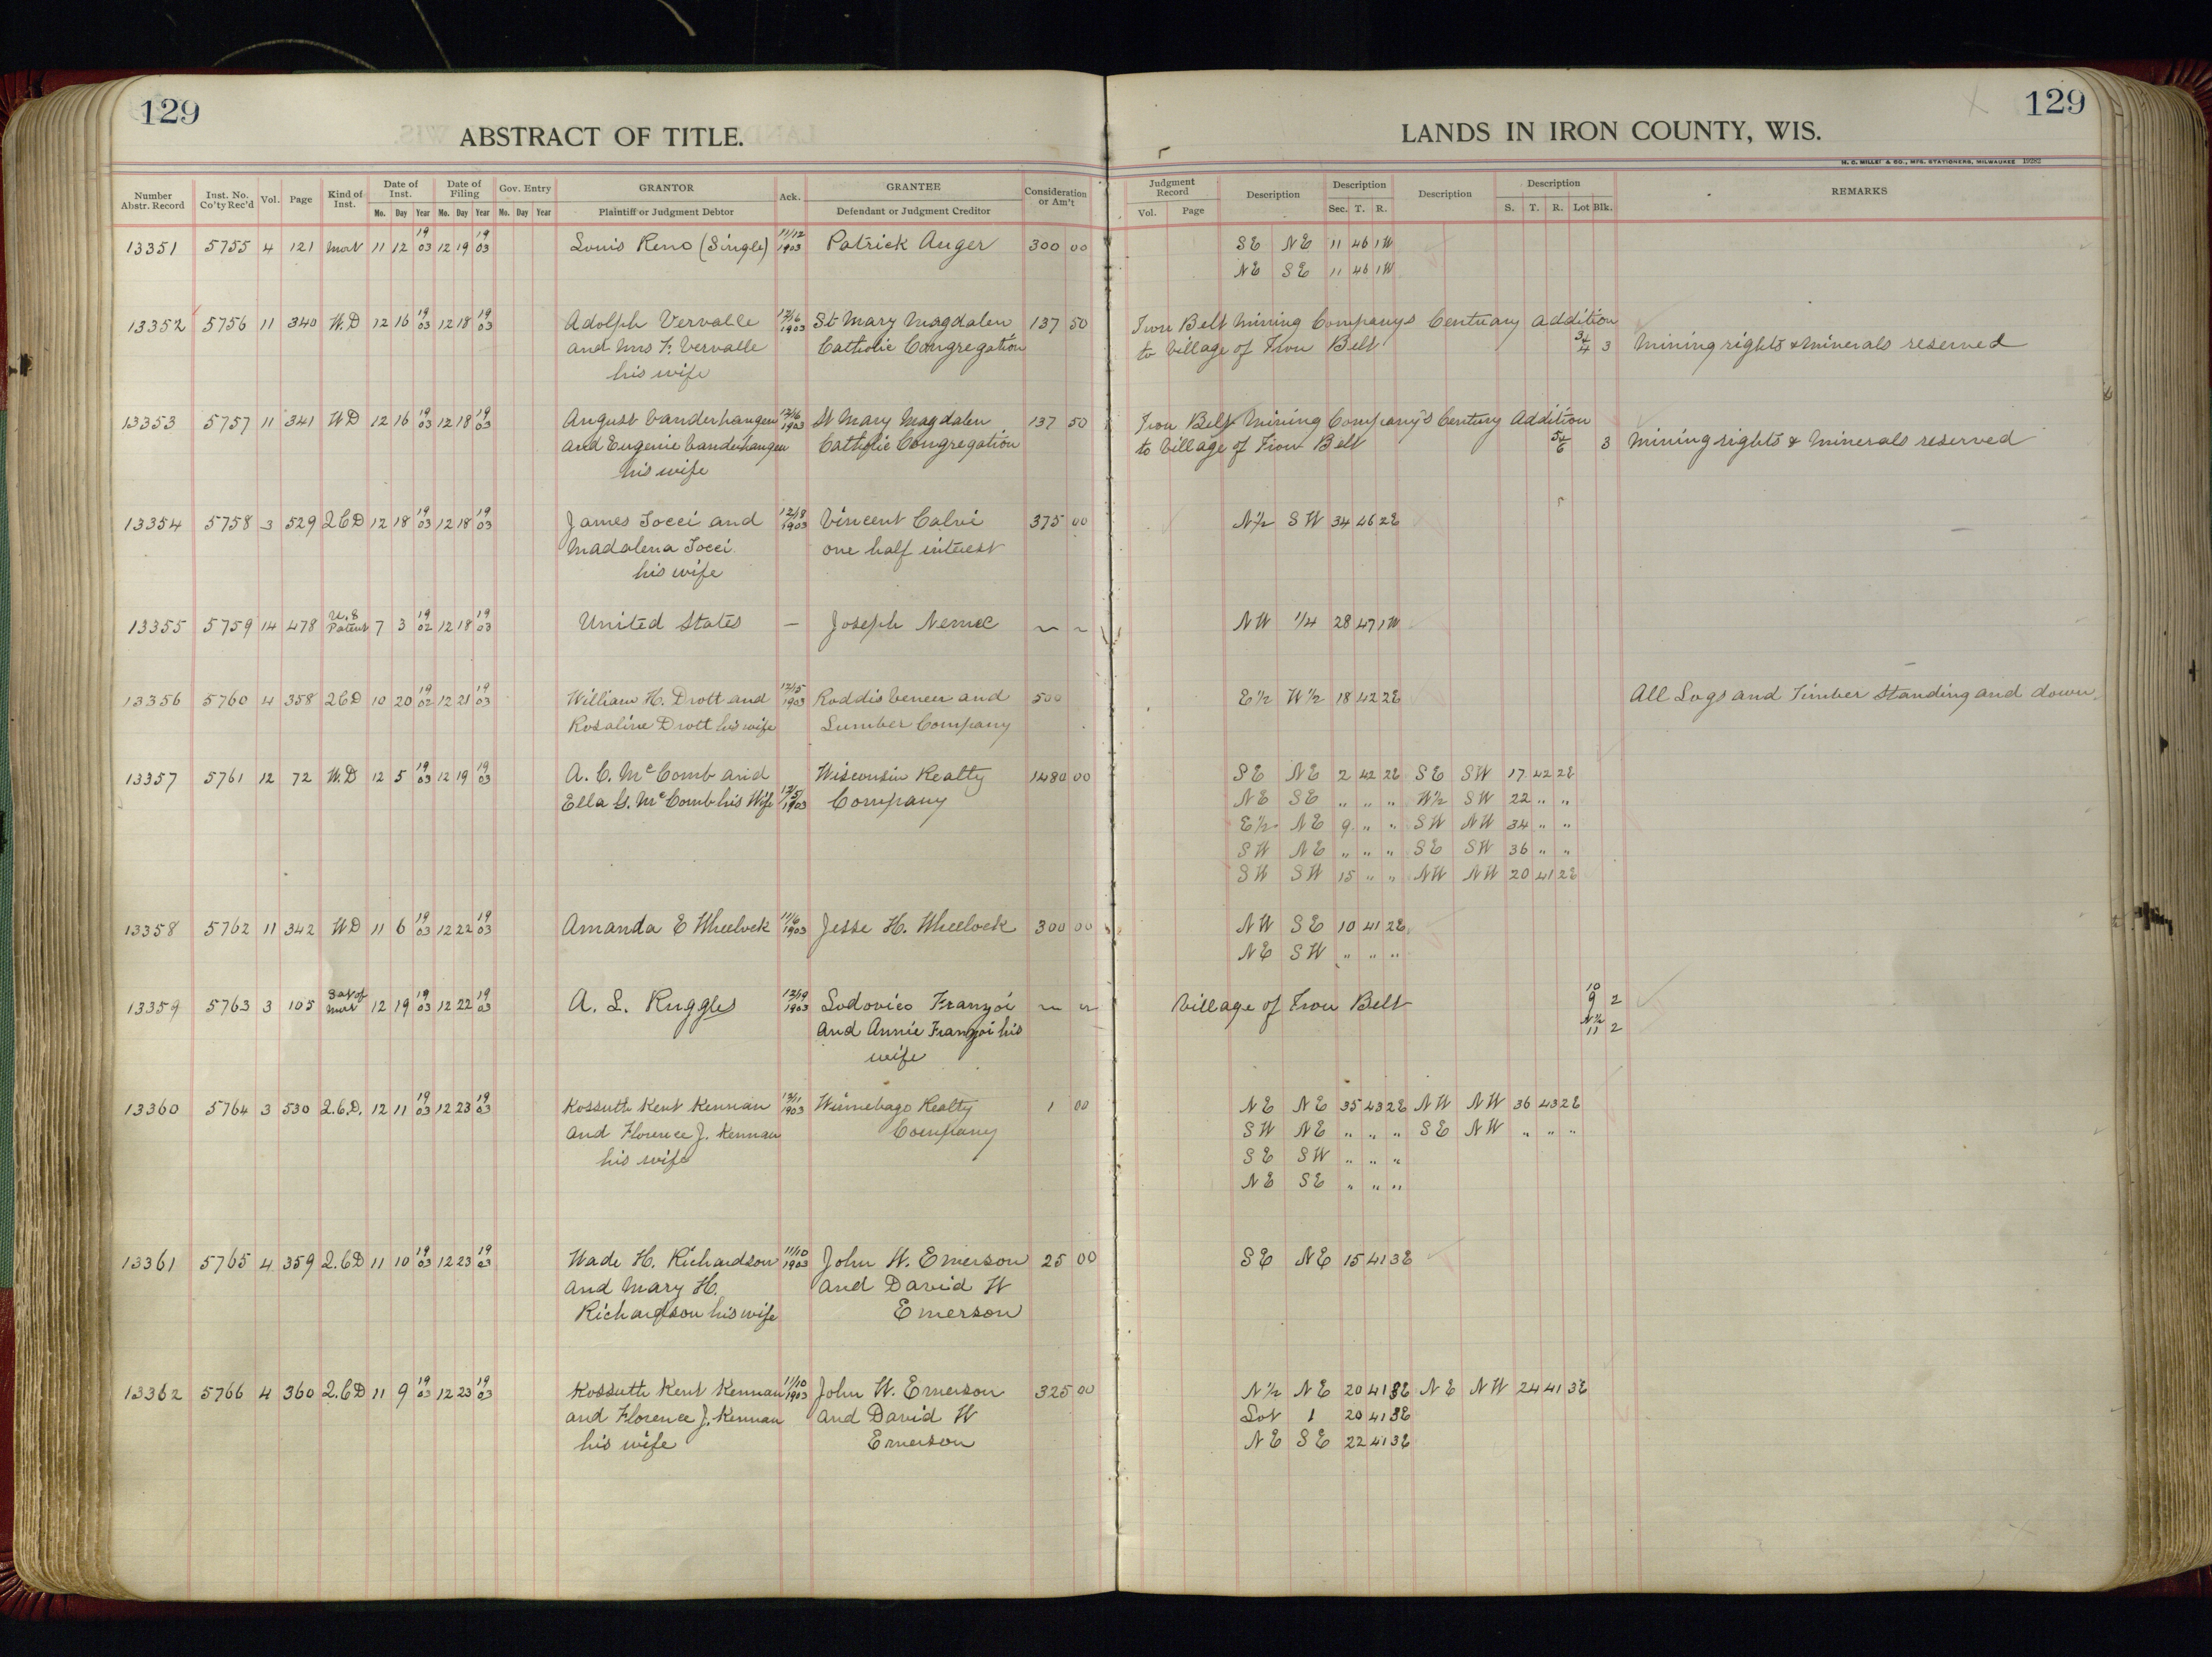 129
ABSTRACT OF TITLE.
LANDS IN IRON COUNTY, WIS.
129
H. C. MILLER CO., MFG. STATIONERS, MILWAUKEE 19282
Number Abstr. Record Inst. No. Co'ty Rec'd Vol. Page Kind of Inst. Date of Inst. Mo. Day Year Date of Filing Mo. Day Year Gov. Entry Mo. Day Year GRANTOR Plaintiff or Judgment Debtor Ack. GRANTEE Defendant or Judgment Creditor Consideration or Am't Judgment Record Vol. Page Description Description Sec. T. R. Description Description S. T. R. Lot Blk. REMARKS
13351 5755 4 121 Mort 11 12 19 03 12 19 19 03 Louis Reno (Single) 11/12 1903 Patrick Auger 300 00 SE NE 11 46 1W
NE SE 11 46 1W
13352 5756 11 340 W.D 12 16 19 03 12 18 19 03 Adolph Vervalle 12/16 1903 St Mary Magdalen 137 50 Iron Belt Mining Companys Centuary Addition
and Mrs F. Vervalle Catholic Congregation to Village of Iron Belt 3 & 4 3 Mining rights & Minerals reserved
his wife
13353 5757 11 341 WD 12 16 19 03 12 18 19 03 August Vanderhaugen 12/16 1903 St Mary Magdalen 137 50 Iron Belt Mining Company's Century Addition
and Eugenie Vanderhaugen Catholic Congregation to Village of Iron Belt 5 & 6 3 Mining rights & Minerals reserved
his wife
13354 5758 3 529 Q.C.D 12 18 19 03 12 18 19 03 James Tocci and 12/18 1903 Vincent Calvi 375 00 N½ SW 34 46 2E
Madalena Tocci one half interest
his wife
13355 5759 14 478 U.S Patent 7 3 19 02 12 18 19 03 United States — Joseph Nemec ~ ~ NW 1/4 28 47 1W
13356 5760 4 358 QCD 10 20 19 02 12 21 19 03 William H. Drott and 12/15 1903 Roddis Veneer and 500 E½ W½ 18 42 2E All Logs and Timber Standing and down.
Rosaline Drott his wife Lumber Company
13357 5761 12 72 W.D 12 5 19 03 12 19 19 03 A. C. McComb and Wisconsin Realty 1480 00 SE NE 2 42 2E SE SW 17 42 2E
Ella G. McComb his Wife 12/5 1903 Company NE SE " " " W½ SW 22 " "
E½ NE 9 " " SW NW 34 " "
SW NE " " " SE SW 36 " "
SW SW 15 " " NW NW 20 41 2E
13358 5762 11 342 WD 11 6 19 03 12 22 19 03 Amanda E Wheelock 11/6 1903 Jesse H. Wheelock 300 00 NW SE 10 41 2E
NE SW " " "
13359 5763 3 105 Sat of Mort 12 19 19 03 12 22 19 03 A. L. Ruggles 12/19 1903 Lodovico Franzoi ~ ~ Village of Iron Belt 10 9 2
and Annie Franzoi his N½ 11 2
wife
13360 5764 3 530 Q.C.D. 12 11 19 03 12 23 19 03 Kossuth Kent Kennan 12/11 1903 Winnebago Realty 1 00 NE NE 35 43 2E NW NW 36 43 2E
and Florence J. Kennan Company SW NE " " " SE NW " " "
his wife SE SW " " "
NE SE " " "
13361 5765 4 359 Q.CD 11 10 19 03 12 23 19 03 Wade H. Richardson 11/10 1903 John W. Emerson 25 00 SE NE 15 41 3E
and Mary H. and David W
Richardson his wife Emerson
13362 5766 4 360 Q.CD 11 9 19 03 12 23 19 03 Kossuth Kent Kennan 11/10 1903 John W. Emerson 325 00 N½ NE 20 41 3E NE NW 24 41 3E
and Florence J. Kennan and David W Lot 1 20 41 3E
his wife Emerson NE SE 22 41 3E